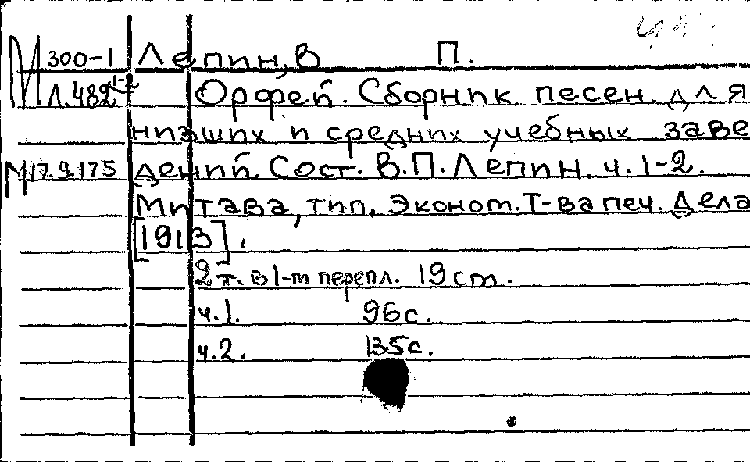 М 300-1 Лепин, В П.
Л.482 1-2 Орфей. Сборник песен для
низших и средних учебных заве
М 17.9.175 дений. Сост. В.П. Лепин. ч. 1-2.
Митава, тип. Эконом. Т-ва печ. Дела
[1913].
2 т. в 1-m перепл. 19 cm.
ч.1. 96 с.
ч.2. 135 с.